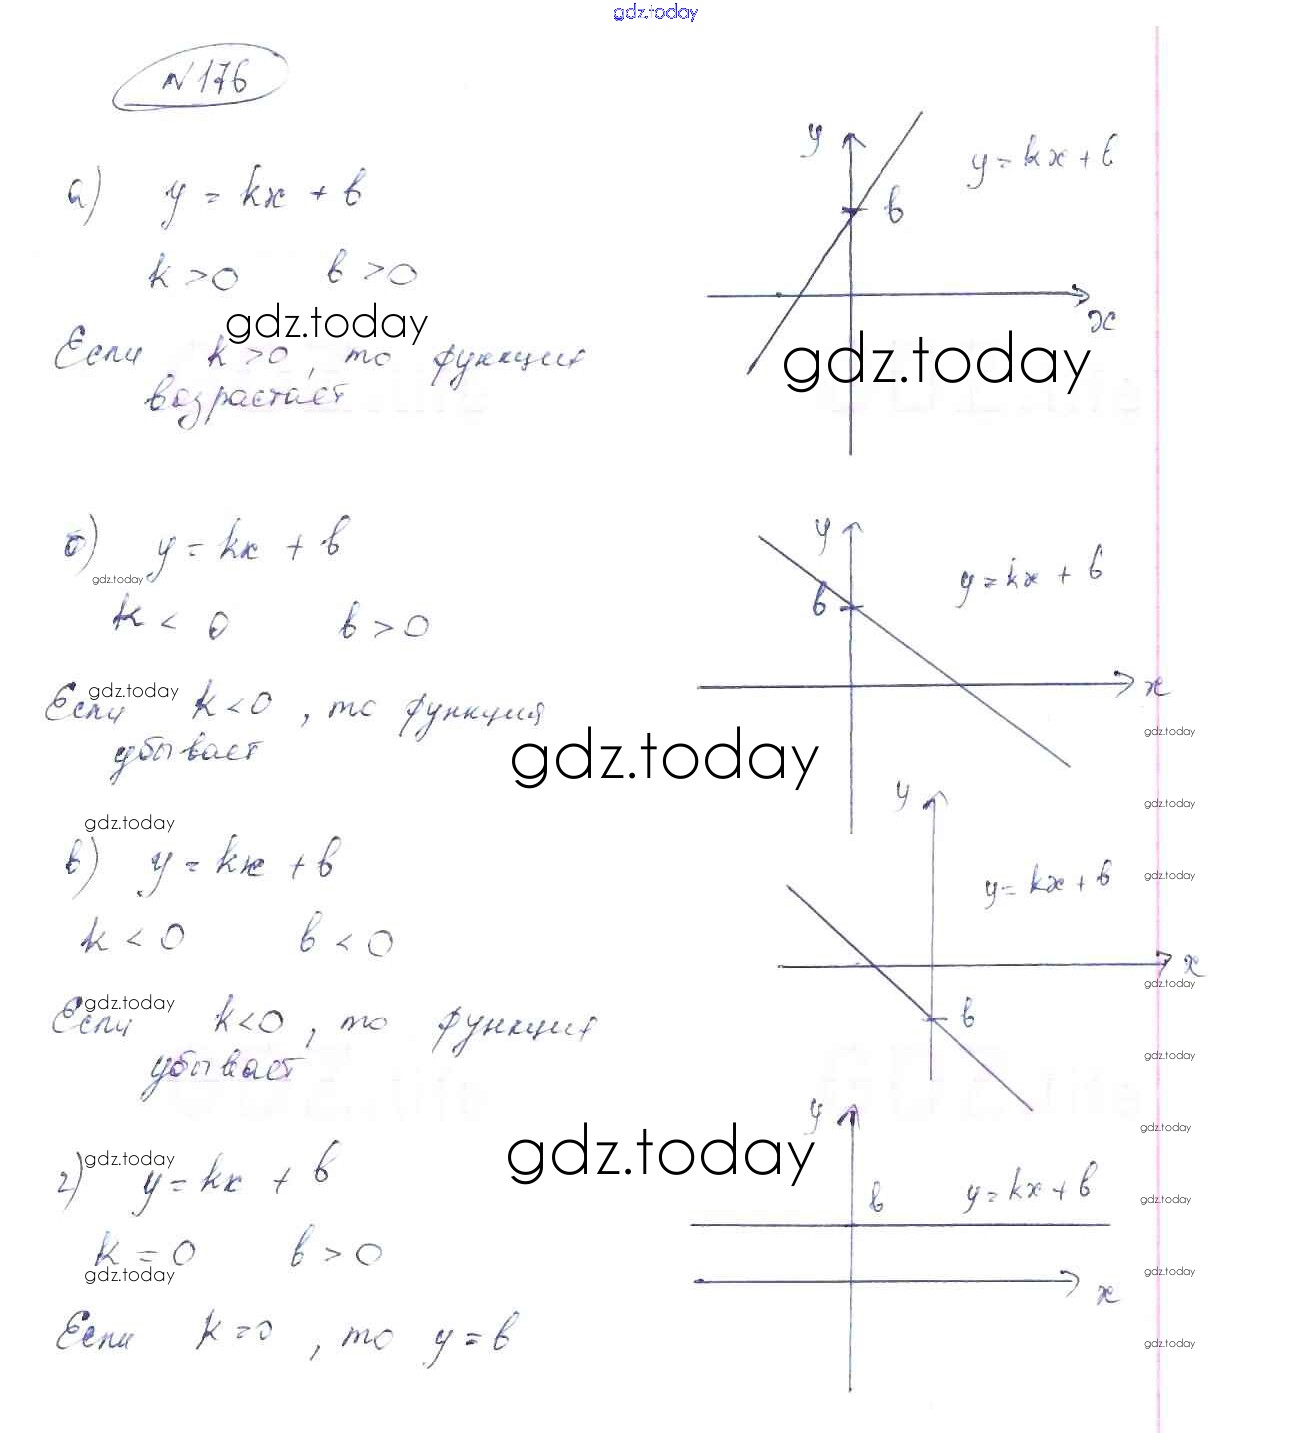 gdz.today
N176
а) y = kx + b
y
y = kx + b
b
k > 0 b > 0
x
gdz.today
gdz.today
Если k > 0, то функция
возрастает
б) y = kx + b
y
y = kx + b
gdz.today
b
k < 0 b > 0
x
gdz.today
Если k < 0, то функция
убывает
gdz.today
gdz.today
gdz.today
y
gdz.today
в) y = kx + b
y = kx + b
gdz.today
k < 0 b < 0
x
gdz.today
gdz.today
b
Если k < 0, то функция
убывает
gdz.today
y
gdz.today
gdz.today
gdz.today
г) y = kx + b
b
y = kx + b
gdz.today
k = 0 b > 0
gdz.today
gdz.today
x
Если k = 0, то y = b
gdz.today